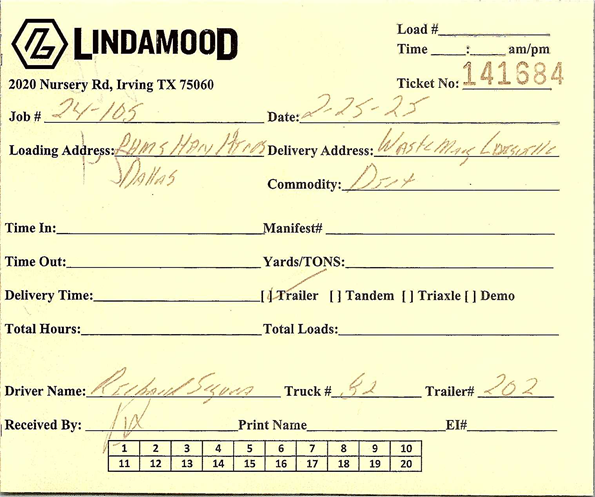 LINDAMOOD
Load #
Time : am/pm
2020 Nursery Rd, Irving TX 75060
Ticket No: 141684
Job # 24-105 Date: 2-25-25
Loading Address: Delivery Address: Waste
Dallas
Commodity: Dirt
Time In: Manifest#
Time Out: Yards/TONS:
Delivery Time: [✓] Trailer [ ] Tandem [ ] Triaxle [ ] Demo
Total Hours: Total Loads:
Driver Name: Richard Truck # 82 Trailer# 202
Received By: Print Name EI#
1 2 3 4 5 6 7 8 9 10
11 12 13 14 15 16 17 18 19 20